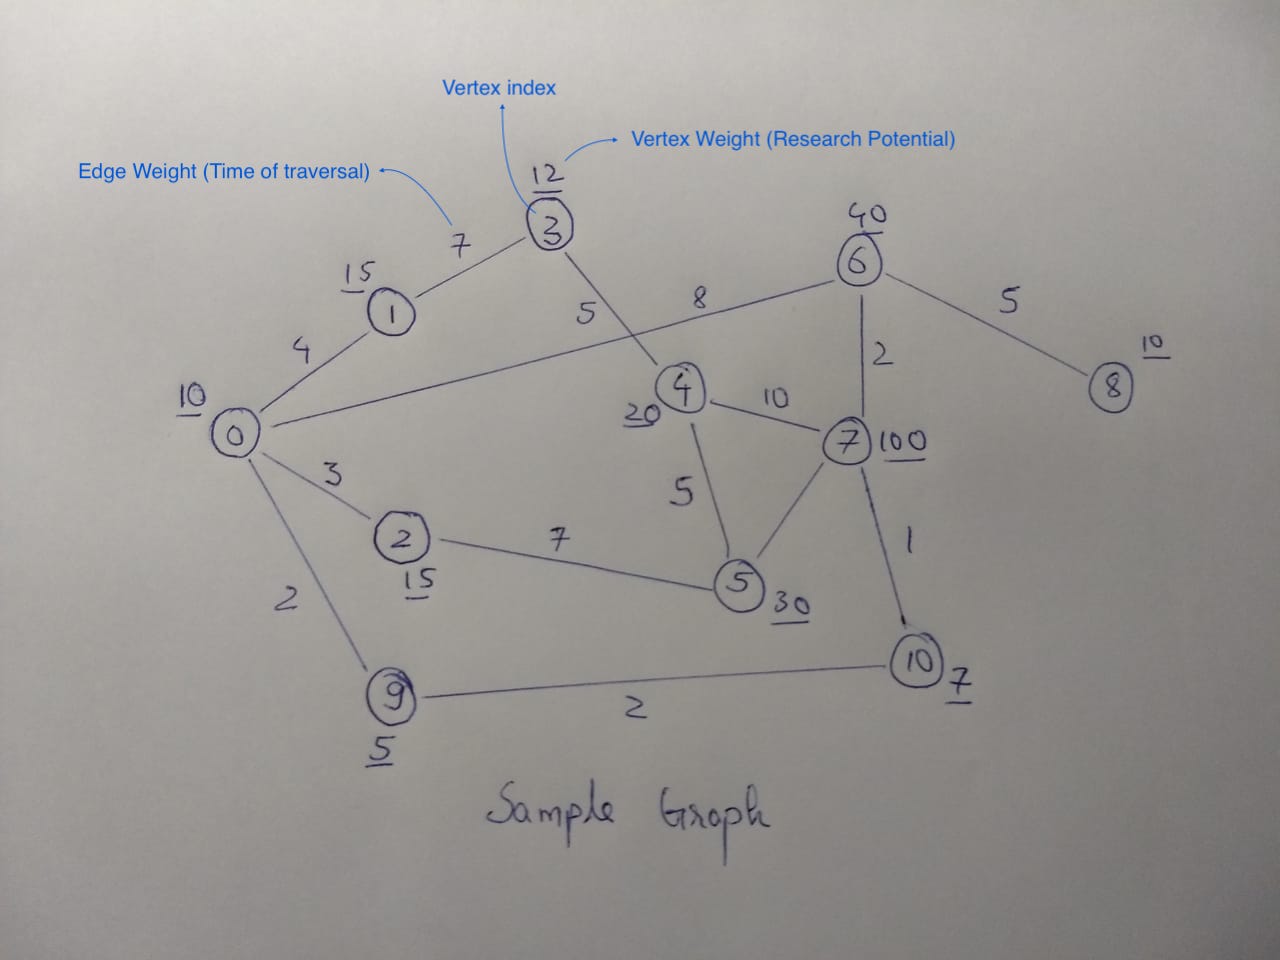 Vertex index
Vertex Weight (Research Potential)
Edge Weight (Time of traversal)
12
3
7
40
6
15
1
5
8
5
4
2
10
8
10
0
4
10
20
7
100
3
5
1
2
15
7
5
30
2
10
7
9
5
2
Sample Graph